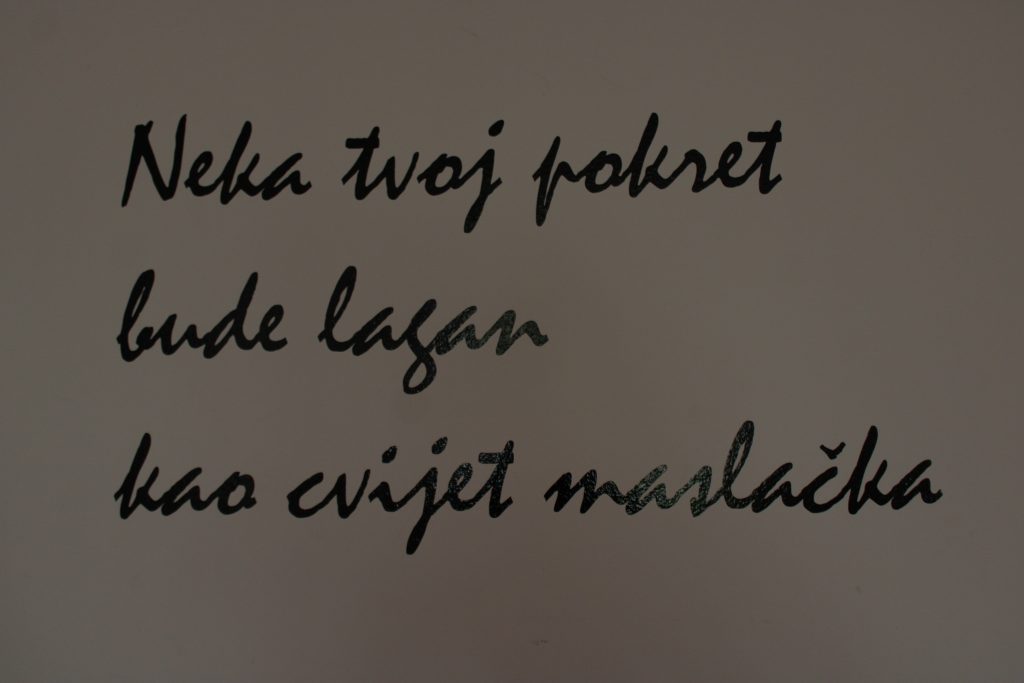 Neka tvoj pokret
bude lagan
kao cvijet maslačka